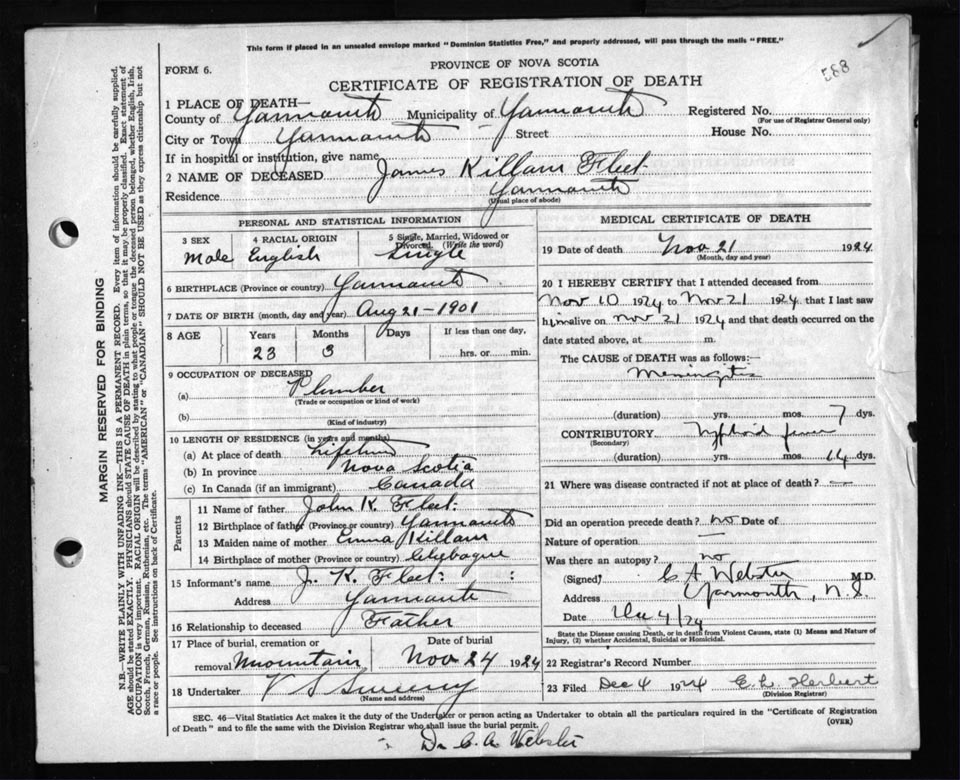 This form if placed in an unsealed envelope marked "Dominion Statistics Free," and properly addressed, will pass through the mails "FREE."
FORM 6.
PROVINCE OF NOVA SCOTIA
CERTIFICATE OF REGISTRATION OF DEATH
1 PLACE OF DEATH—
County of Yarmouth Municipality of Yarmouth Registered No.
(For use of Registrar General only)
City or Town Yarmouth Street House No.
If in hospital or institution, give name
2 NAME OF DECEASED James Killam Fleet
Residence Yarmouth
(Usual place of abode)
PERSONAL AND STATISTICAL INFORMATION
3 SEX Male
4 RACIAL ORIGIN English
5 Single, Married, Widowed or Divorced. (Write the word) Single
6 BIRTHPLACE (Province or country) Yarmouth
7 DATE OF BIRTH (month, day and year) Aug 21-1901
8 AGE Years Months Days If less than one day,
23 3 hrs. or min.
9 OCCUPATION OF DECEASED
(a) Plumber
(Trade or occupation or kind of work)
(b)
(Kind of industry)
10 LENGTH OF RESIDENCE (in years and months)
(a) At place of death Lifetime
(b) In province Nova Scotia
(c) In Canada (if an immigrant) Canada
Parents
11 Name of father John K. Fleet
12 Birthplace of father (Province or country) Yarmouth
13 Maiden name of mother Emma Killam
14 Birthplace of mother (Province or country)
15 Informant's name J. K. Fleet
Address Yarmouth
16 Relationship to deceased Father
17 Place of burial, cremation or removal Mountain
Date of burial Nov 24 1924
18 Undertaker V S Sweeny
(Name and address)
MEDICAL CERTIFICATE OF DEATH
19 Date of death Nov 21 1924
(Month, day and year)
20 I HEREBY CERTIFY that I attended deceased from
Nov 10 1924 to Nov 21 1924 that I last saw
him alive on Nov 21 1924 and that death occurred on the
date stated above, at m.
The CAUSE of DEATH was as follows:—
Meningitis
(duration) yrs. mos. 7 dys.
CONTRIBUTORY Typhoid fever
(Secondary)
(duration) yrs. mos. 14 dys.
21 Where was disease contracted if not at place of death? —
Did an operation precede death? no Date of
Nature of operation —
Was there an autopsy? no
(Signed) C A Webster M.D.
Address Yarmouth, N.S.
Date Dec 4/24
State the Disease causing Death, or in death from Violent Causes, state (1) Means and Nature of
Injury, (2) whether Accidental, Suicidal or Homicidal.
22 Registrar's Record Number
23 Filed Dec 4 1924 E. L. Herbert
(Division Registrar)
SEC. 46—Vital Statistics Act makes it the duty of the Undertaker or person acting as Undertaker to obtain all the particulars required in the "Certificate of Registration
of Death" and to file the same with the Division Registrar who shall issue the burial permit.
(OVER)
Dr C. A. Webster
MARGIN RESERVED FOR BINDING
N.B.—WRITE PLAINLY WITH UNFADING INK—THIS IS A PERMANENT RECORD. Every item of information should be carefully supplied.
AGE should be stated EXACTLY. PHYSICIANS should STATE CAUSE OF DEATH in plain terms, so that it may be properly classified. Exact statement of
OCCUPATION is very important. RACIAL ORIGIN will be described by stating to what people or tongue the deceased person belonged, whether English, Irish,
Scotch, French, German, Russian, Ruthenian, etc. The terms "AMERICAN" or "CANADIAN" SHOULD NOT BE USED as they express citizenship but not
a race or people. See instructions on back of Certificate.